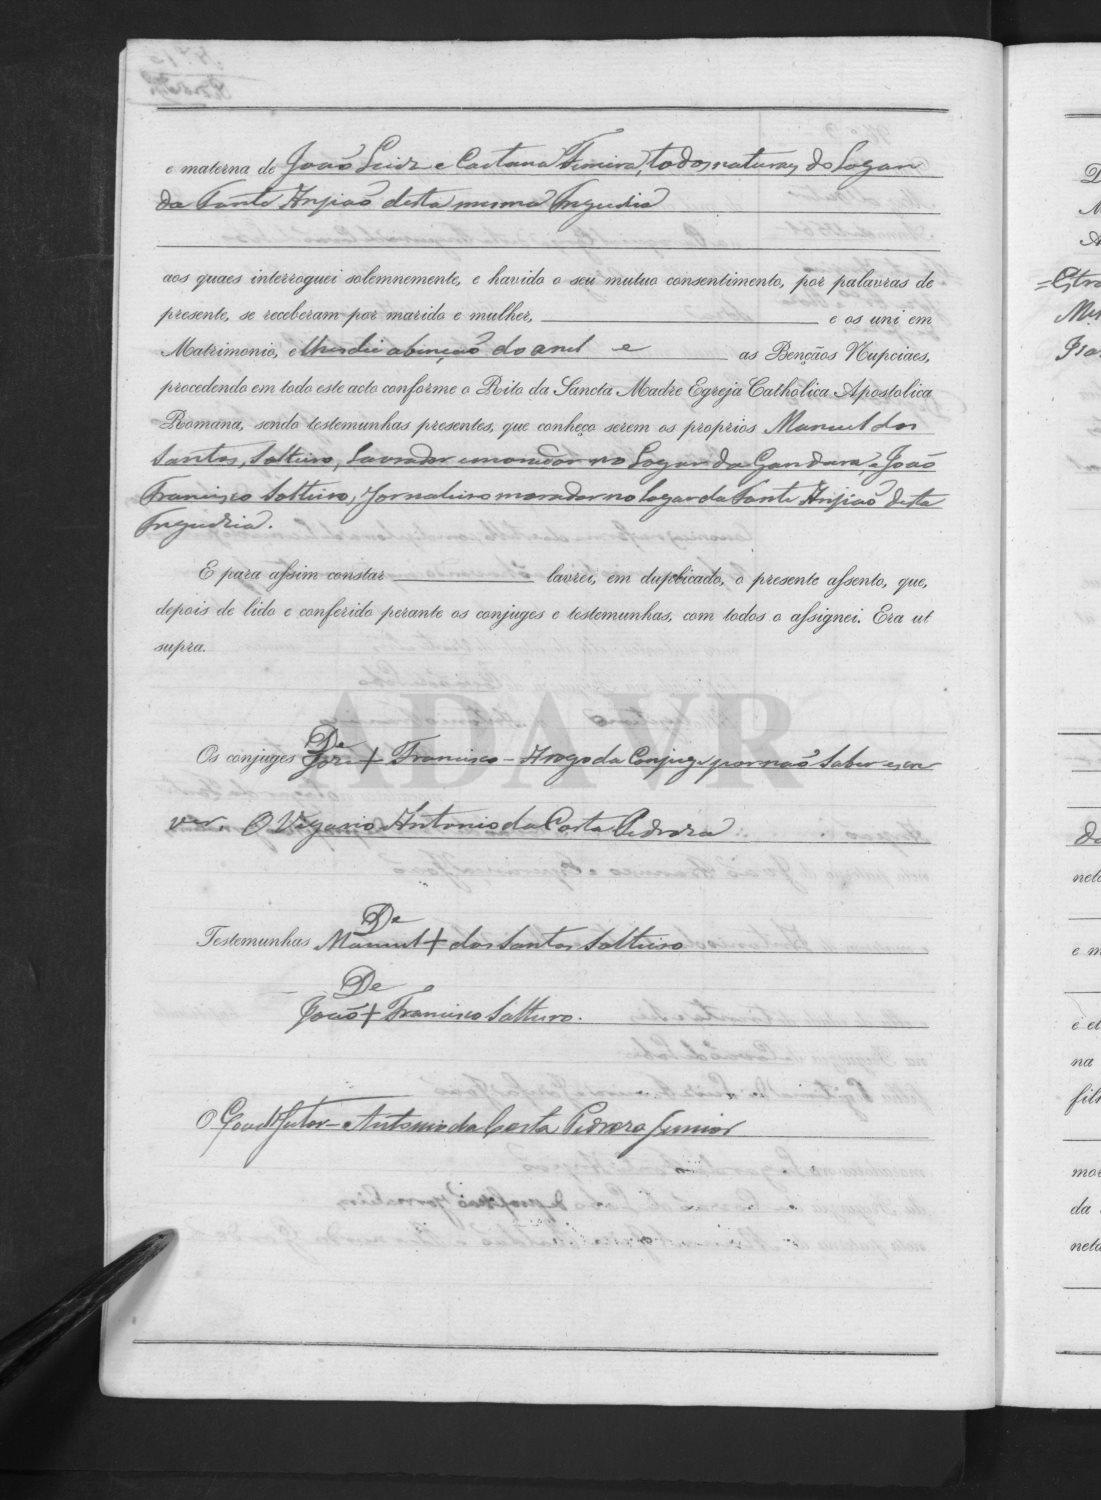 e materna de João Luiz e Caetana Ferreira, todos naturaes do Logar
da Fonte Anjiaõ desta mesma Freguezia
aos quaes interroguei solemnemente, e havido o seu mutuo consentimento, por palavras de
presente, se receberam por marido e mulher, e os uni em
Matrimonio, e lhes dei a bençaõ do anel e as Bençãos Nupciaes,
procedendo em todo este acto conforme o Rito da Sancta Madre Egreja Catholica Apostolica
Romana, sendo testemunhas presentes, que conheço serem os proprios Manuel dos
Santos, Solteiro, Lavrador e morador no Logar da Gandara, e João
Francisco Solteiro, Jornaleiro morador no logar da Fonte Anjiaõ desta
Freguezia.
E para assim constar lavrei, em duplicado, o presente assento, que,
depois de lido e conferido perante os conjuges e testemunhas, com todos o assignei. Era ut
supra.
ADAVR
De
Os conjuges José + Francisco - A rogo da Conjuge por naõ saber escre
ver, O Vigario Antonio da Costa Pedroza
De
Testemunhas Manuel + dos Santos Solteiro
De
João + Francisco Solteiro.
O Coadjutor - Antonio da Costa Pedroza Junior